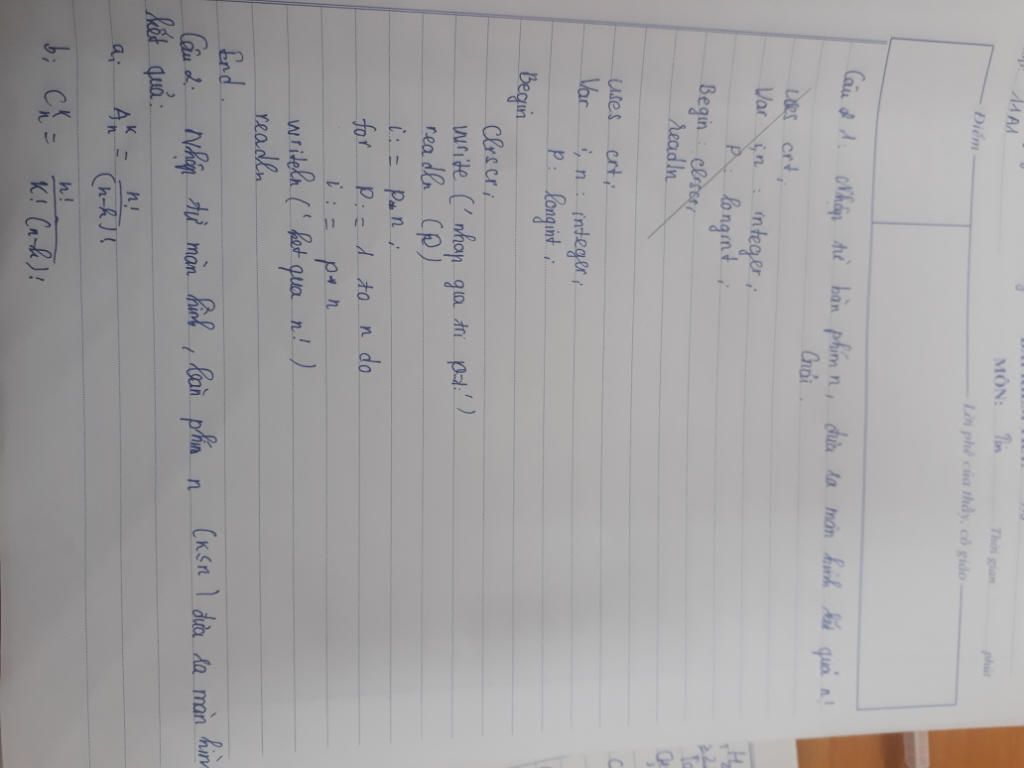 11A1
MÔN: Tin
Thời gian phút
Điểm
Lời phê của thầy, cô giáo
Câu 1: Nhập từ bàn phím n, đưa ra màn hình kết quả n!
Giải.
uses crt;
Var i,n : integer;
p : longint;
Begin : clrscr;
readln
uses crt;
Var i, n : integer;
p : longint;
Begin
Clrscr;
write ('nhap gia tri p=:')
readln (p)
i := p*n;
for p := 1 to n do
i := p*n
writeln ('ket qua n!)
readln
End.
Câu 2. Nhập từ màn hình, bàn phím n (K≤n) đưa ra màn hình
kết quả:
a; A_n^K = n!/(n-k)!
b; C_n^K = n!/K!(n-k)!